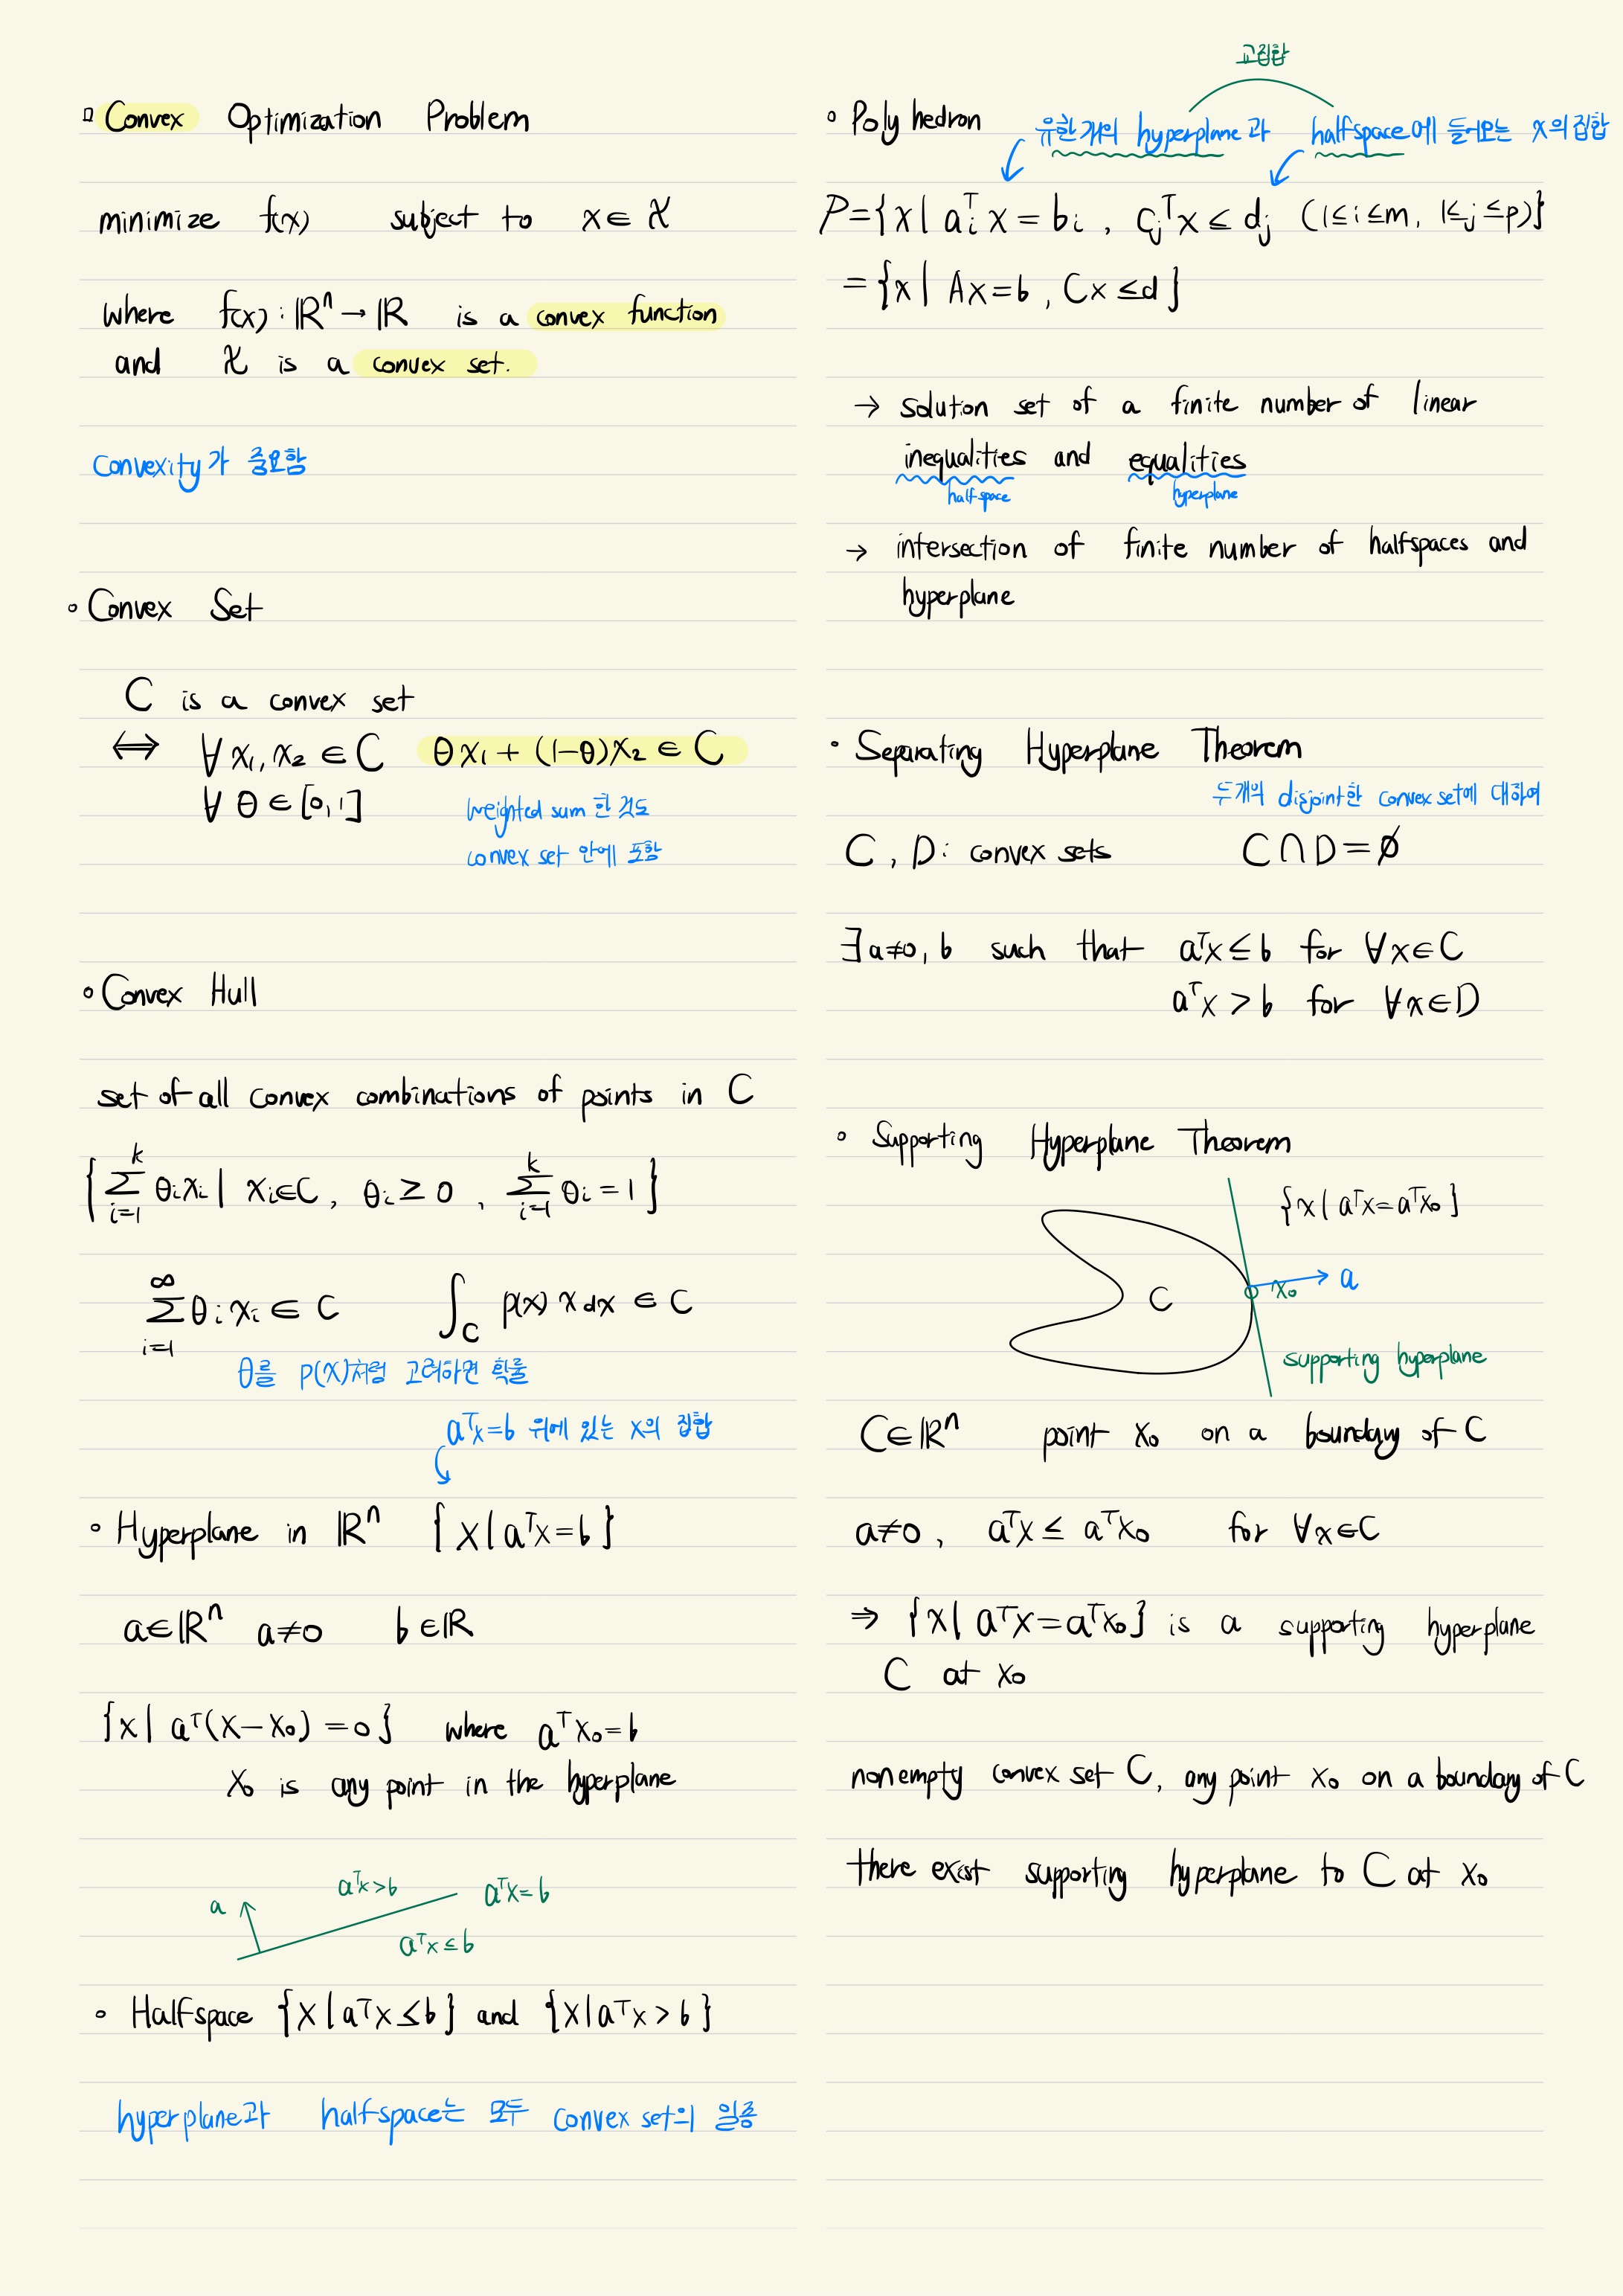 ▫ Convex Optimization Problem
minimize f(x) subject to x ∈ 𝒳
where f(x) : ℝⁿ → ℝ is a convex function
and 𝒳 is a convex set.
Convexity가 중요함
∘ Convex Set
C is a convex set
⟺ ∀ x₁, x₂ ∈ C θx₁ + (1-θ)x₂ ∈ C
∀ θ ∈ [0, 1]
weighted sum 한 것도
convex set 안에 포함
∘ Convex Hull
set of all convex combinations of points in C
{ ∑_{i=1}^{k} θᵢxᵢ | xᵢ∈C, θᵢ ≥ 0, ∑_{i=1}^{k} θᵢ = 1 }
∑_{i=1}^{∞} θᵢxᵢ ∈ C ∫_C p(x) x dx ∈ C
θ를 p(x)처럼 고려하면 확률
aᵀx=b 위에 있는 x의 집합
∘ Hyperplane in ℝⁿ { x | aᵀx = b }
a∈ℝⁿ a≠0 b∈ℝ
{x | aᵀ(x-x₀) = 0} where aᵀx₀ = b
x₀ is any point in the hyperplane
a aᵀx>b aᵀx=b
aᵀx ≤ b
∘ Halfspace {x | aᵀx ≤ b} and {x | aᵀx > b}
hyperplane과 halfspace는 모두 convex set의 일종
교집합
∘ Polyhedron
유한개의 hyperplane과 halfspace에 들어오는 x의 집합
P = {x | aᵢᵀx = bᵢ, cⱼᵀx ≤ dⱼ (1≤i≤m, 1≤j≤p)}
= {x | Ax=b, Cx ≤d}
→ solution set of a finite number of linear
inequalities and equalities
halfspace hyperplane
→ intersection of finite number of halfspaces and
hyperplane
• Separating Hyperplane Theorem
두개의 disjoint한 convex set에 대하여
C, D : convex sets C∩D = ∅
∃a≠0, b such that aᵀx ≤ b for ∀x∈C
aᵀx > b for ∀x∈D
∘ Supporting Hyperplane Theorem
{x | aᵀx = aᵀx₀}
C x₀ a
supporting hyperplane
C∈ℝⁿ point x₀ on a boundary of C
a≠0, aᵀx ≤ aᵀx₀ for ∀x∈C
⇒ {x | aᵀx = aᵀx₀} is a supporting hyperplane
C at x₀
nonempty convex set C, any point x₀ on a boundary of C
there exist supporting hyperplane to C at x₀